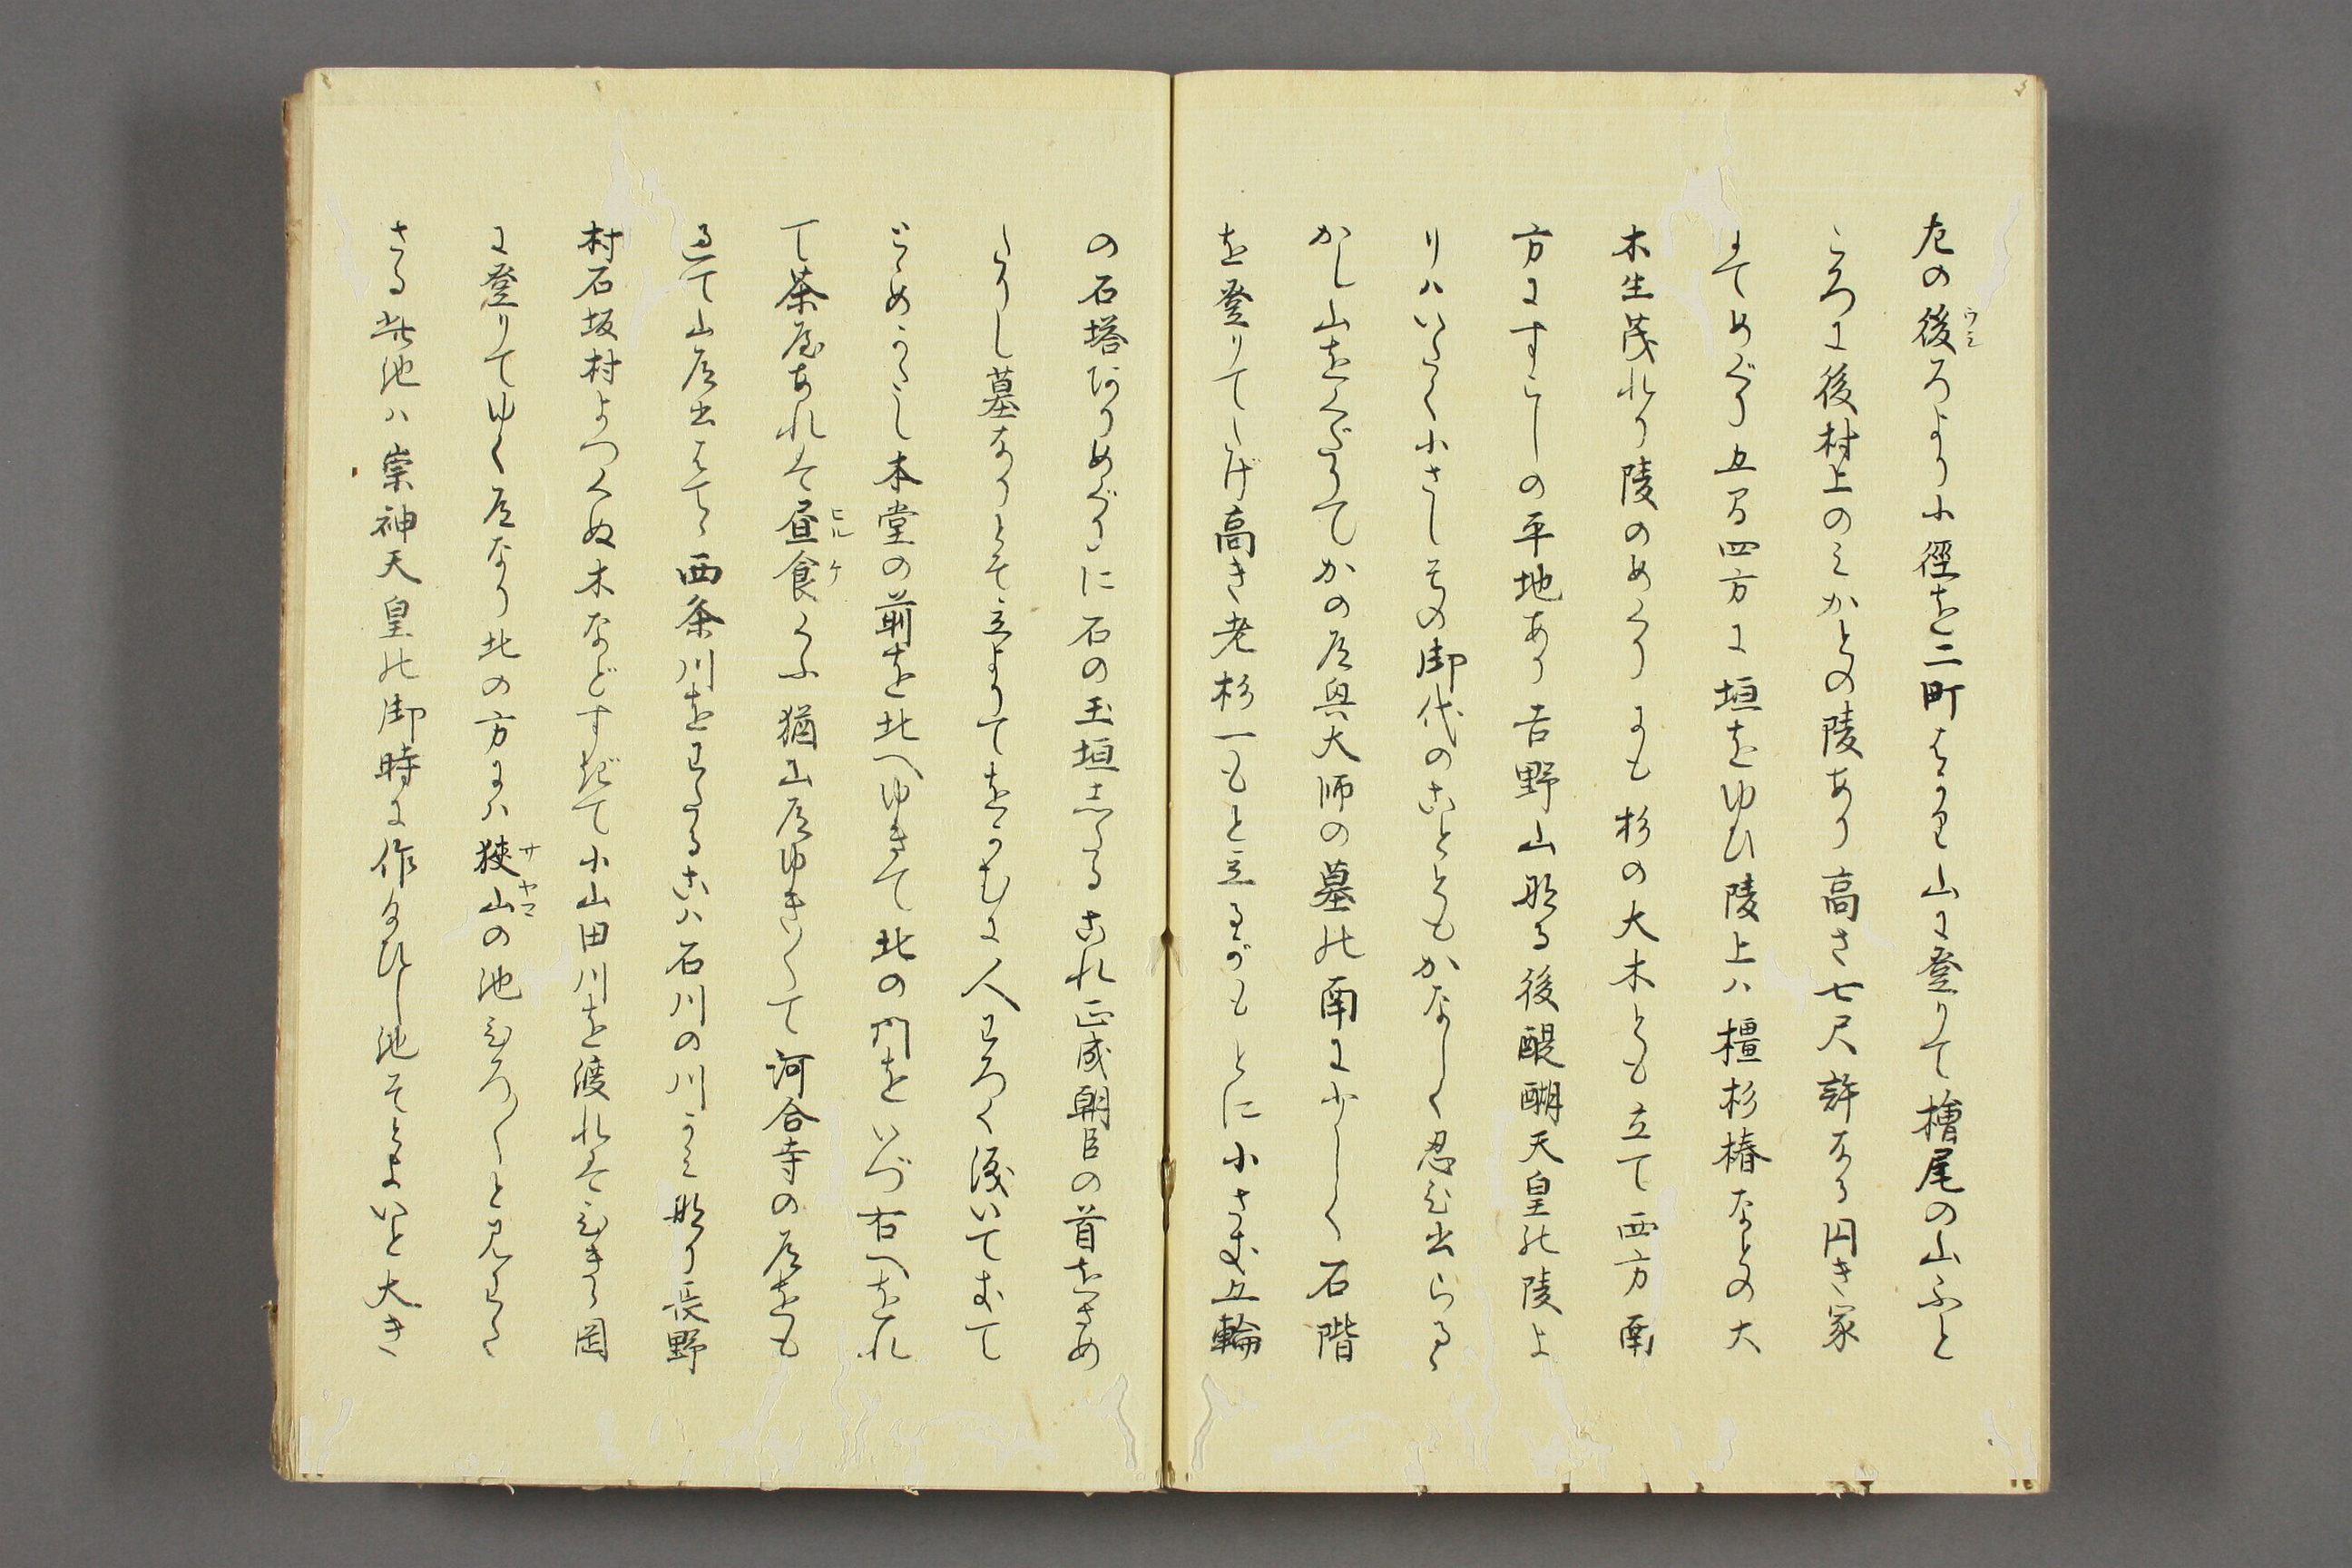 左の後ろより小徑を二町はかり山に登りて檜尾の山ふと
ころに後村上のみかとの陵あり高さ七尺許なる円き冢
にてめぐり五間四方に垣をゆひ陵上ハ橿杉椿なとの大
木生茂れり陵のめくりにも杉の大木とも立て西方南
方にすこしの平地あり吉野山なる後醍醐天皇の陵よ
りハいたく小さしその御代のことゝもかなしく忍ひ出らるゝ
かし山をくだりてかの道興大師の墓の南に少しく石階
を登りてたけ高き老杉一もと立るがもとに小さき五輪
の石塔ありめぐりに石の玉垣したるこれ正成朝臣の首をさめ
たりし墓なりとて立よりてをかむに人わろく涙いてきて
とゝめかたし本堂の前を北へゆきて北の門をいづ右へをれ
て茶屋あれは昼食くふ猶山道ゆき〳〵て河合寺の道をも
過て山道出はてゝ西条川をわたるこハ石川の川かみなり長野
村石坂村よつくぬ木などすぎて小山田川を渡れはひきゝ岡
に登りてゆく道なり北の方にハ狭山の池ひろ〳〵と見わた
さる此池ハ崇神天皇の御時に作らひし池そとよいと大き